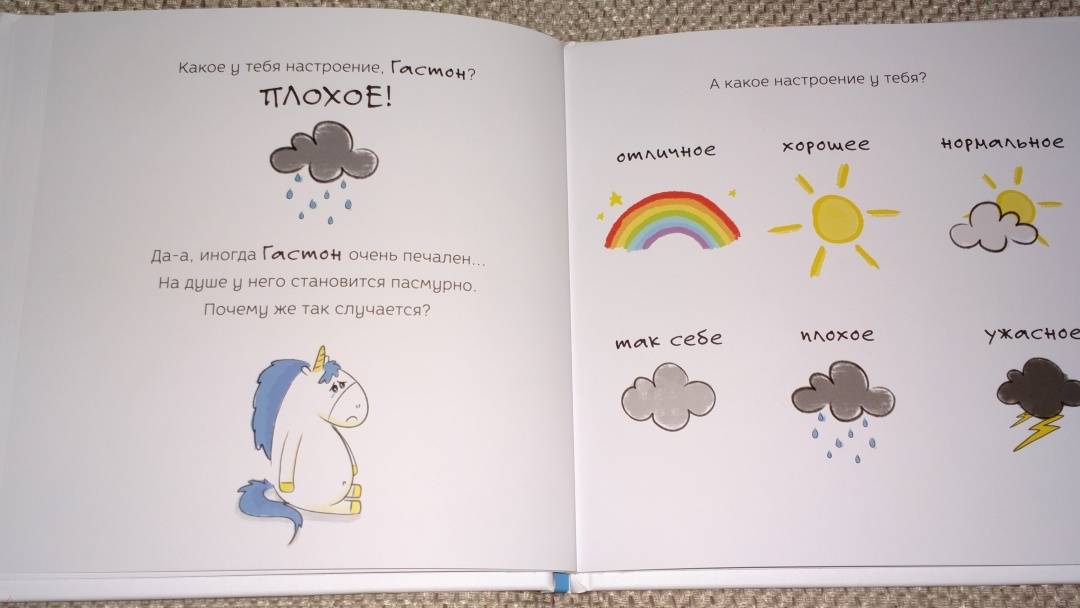 Какое у тебя настроение, Гастон?
ПЛОХОЕ!
Да-а, иногда Гастон очень печален...
На душе у него становится пасмурно.
Почему же так случается?
А какое настроение у тебя?
отличное хорошее нормальное
так себе плохое ужасное